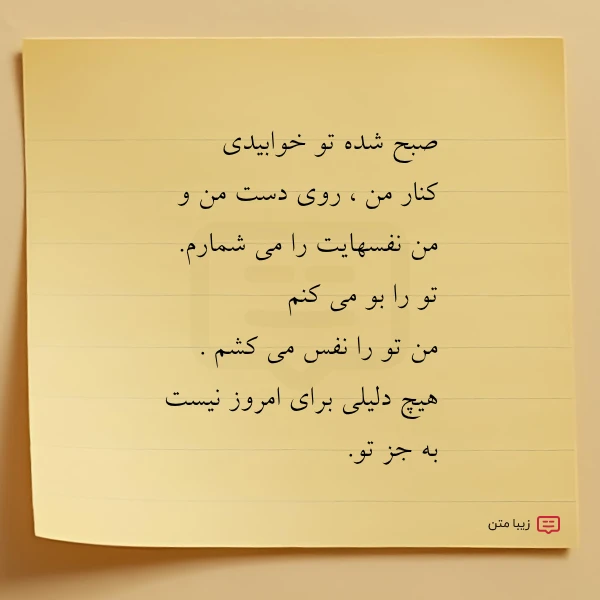 صبح شده تو خوابیدی
کنار من ، روی دست من و
من نفسهایت را می شمارم.
تو را بو می کنم
من تو را نفس می کشم .
هیچ دلیلی برای امروز نیست
به جز تو.
زیبا متن